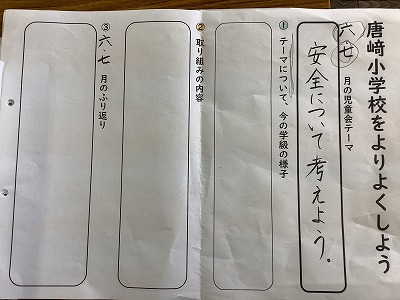 唐崎小学校をよりよくしよう
六・七 月の児童会テーマ
安全について考えよう。
① テーマについて、今の学級の様子
② 取り組みの内容
③ 六・七 月のふり返り